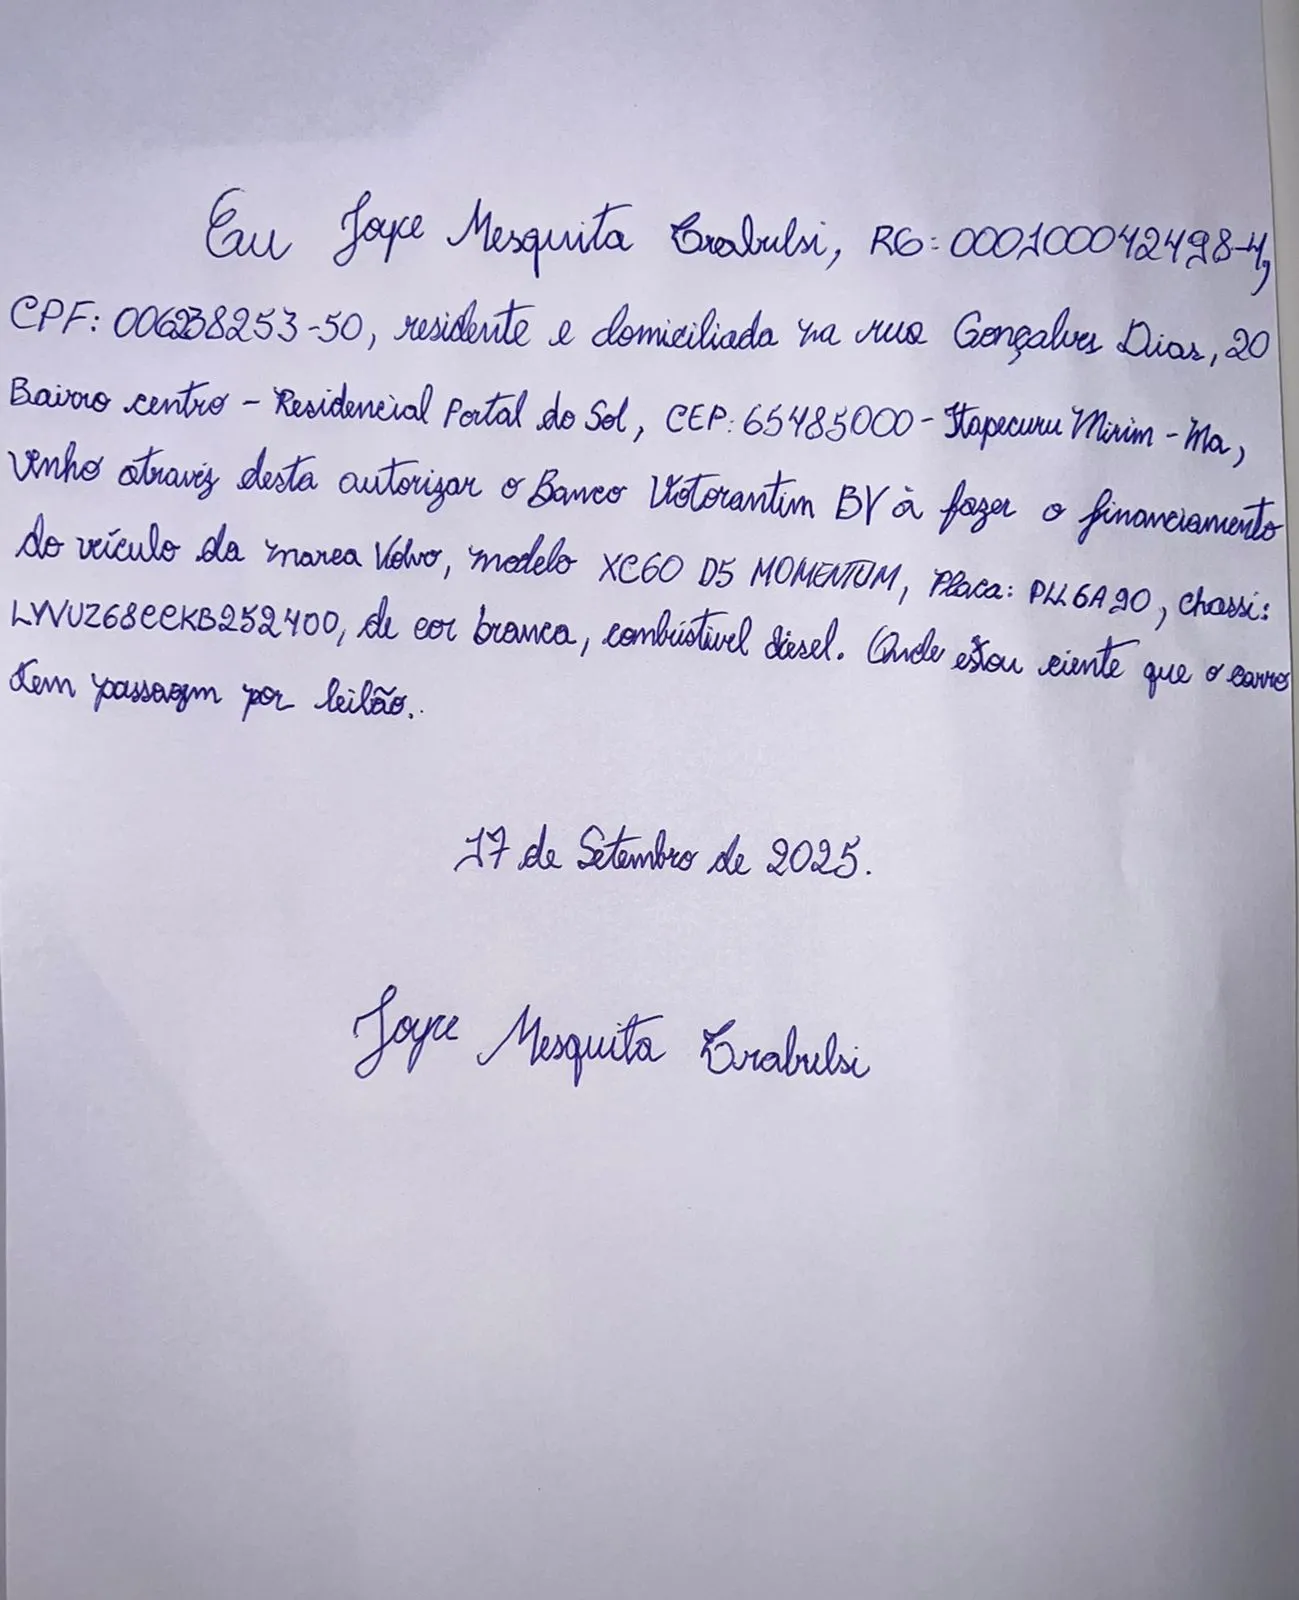 Eu Joyce Mesquita Trabulsi, RG: 000100042498-4,
CPF: 006238253-50, residente e domiciliada na rua Gonçalves Dias, 20
Bairro centro - Residencial Portal do Sol, CEP: 65485000 - Itapecuru Mirim - Ma,
Venho através desta autorizar o Banco Votorantim BV à fazer o financiamento
do veículo da marca Volvo, modelo XC60 D5 MOMENTUM, Placa: , chassi:
LYVUZ68CCKB252400, de cor branca, combústivel diesel. Onde estou ciente que o carro
tem passagem por leilão..
17 de Setembro de 2025.
Joyce Mesquita Trabulsi